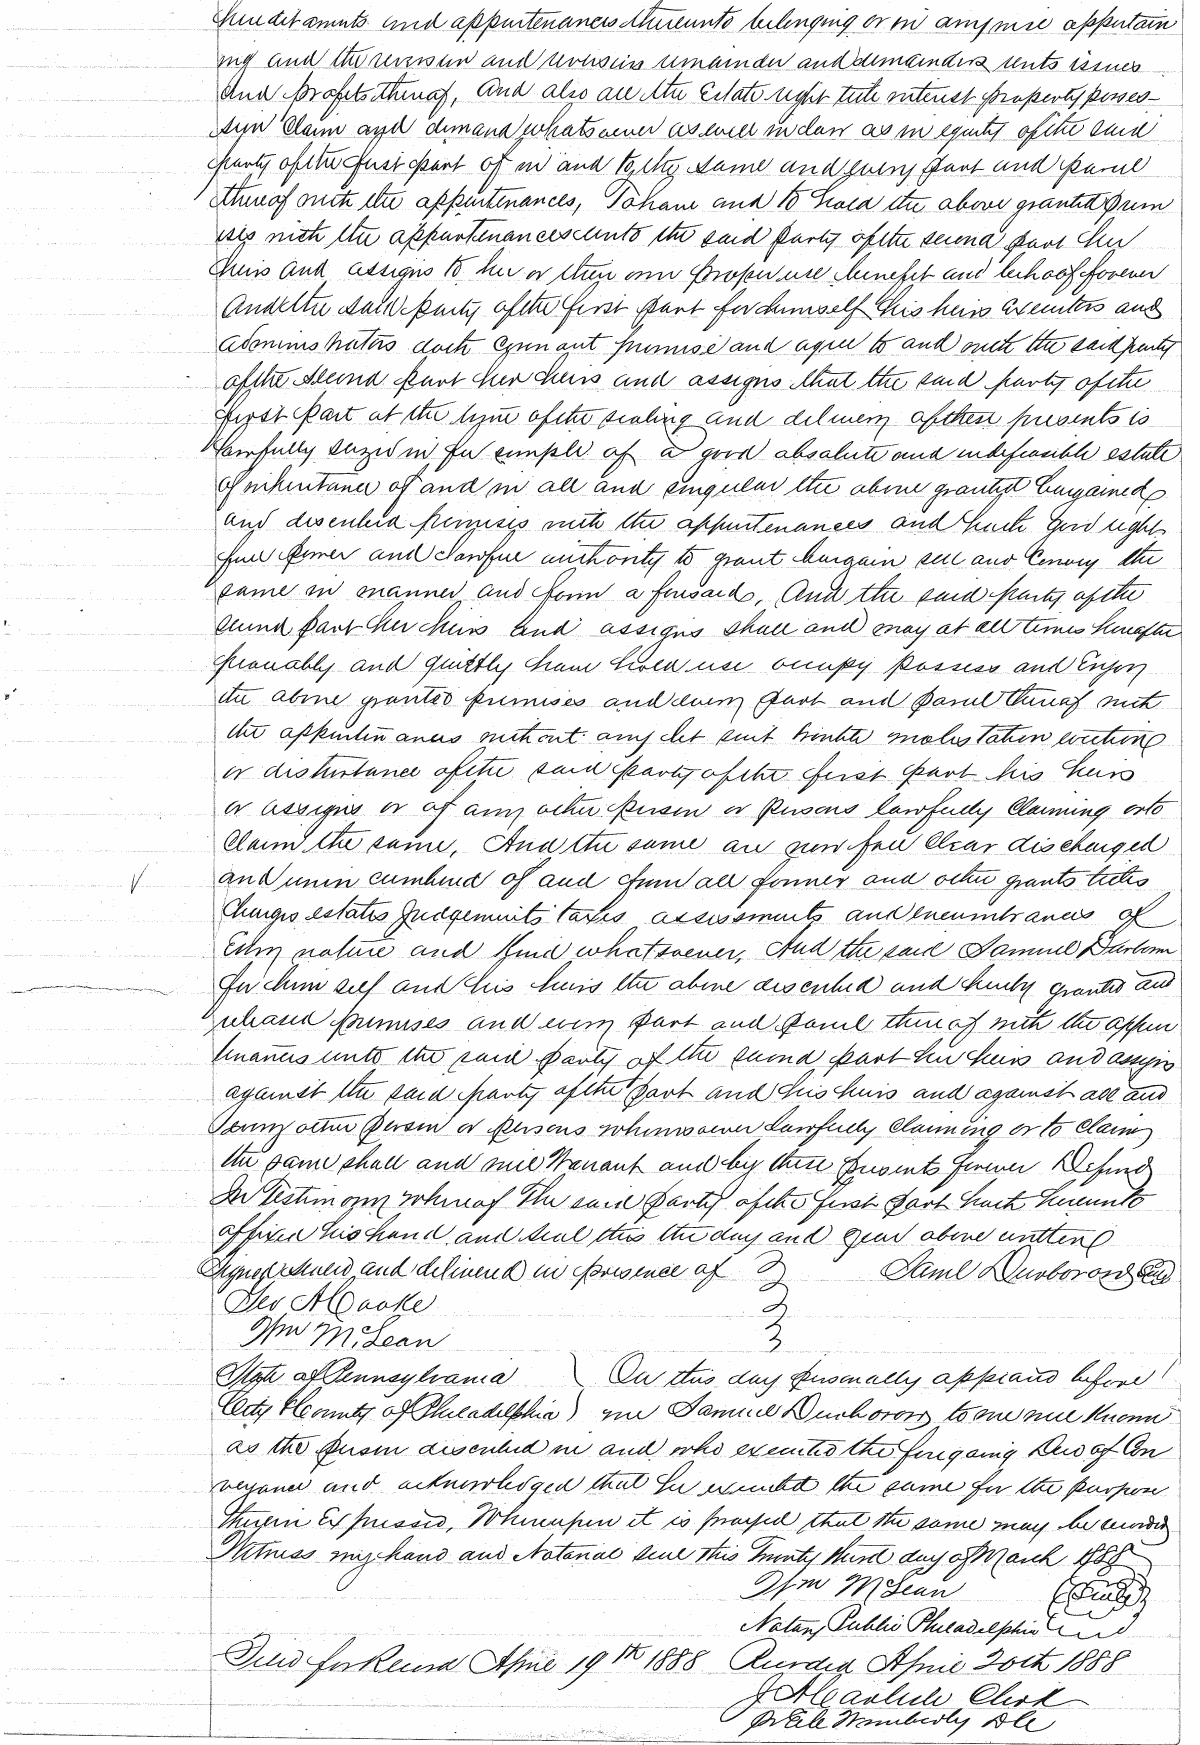 hereditaments and appurtenances thereunto belonging or in anywise appertain
ing and the reversion and reversions remainder and remainders rents issues
and profits thereof, And also all the Estate right title interest property posses-
sion Claim and demand whatsoever as well in law as in equity of the said
party of the first part of in and to the same and every part and parcel
thereof with the appurtenances, To have and to hold the above granted prem
ises with the appurtenances unto the said party of the second part her
heirs and assigns to her or their own proper use benefit and behoof forever
And the said party of the first part for himself his heirs executors and
administrators doth covenant promise and agree to and with the said party
of the second part her heirs and assigns that the said party of the
first part at the time of the sealing and delivery of these presents is
lawfully seized in fee simple of a good absolute and indefeasible estate
of inheritance of and in all and singular the above granted bargained
and described premises with the appurtenances and hath good right
full power and lawful authority to grant bargain sell and convey the
same in manner and form a foresaid, And the said party of the
second part her heirs and assigns shall and may at all times hereafter
peacably and quietly have hold use occupy possess and Enjoy
the above granted premises and every part and parcel thereof with
the appurtenances without any let suit trouble molestation eviction
or disturbance of the said party of the first part his heirs
or assigns or of any other person or persons lawfully Claiming or to
Claim the same, And the same are now free Clear discharged
and unin cumbered of and from all former and other grants titles
Charges estates Judgements taxes assessments and encumbrances of
Every nature and kind whatsoever, And the said Samuel Durborow
for him self and his heirs the above described and hereby granted and
released premises and every part and parcel thereof with the appur
tenances unto the said party of the second part her heirs and assigns
against the said party of the part and his heirs and against all and
every other person or persons whomsoever lawfully claiming or to claim
the same shall and will Warrant and by these presents forever Defend
In Testimony whereof the said party of the first part hath hereunto
affixed his hand and seal this the day and year above written
Signed sealed and delivered in presence of Saml Durborow Seal
Geo A Cooke
Wm McLean
State of Pennsylvania ) On this day personally appeared before
City & County of Philadelphia ) me Samuel Durborow to me well known
as the person described in and who executed the foregoing Deed of Con
veyance and acknowledged that he executed the same for the purpose
therein Expressed, Whereupon it is prayed that the same may be recorded
Witness my hand and Notarial seal this Twenty third day of March 1888
Wm McLean (Seal)
Notary Public Philadelphia
Filed for Record April 19th 1888 Recorded April 20th 1888
Clerk
Wimberly D C